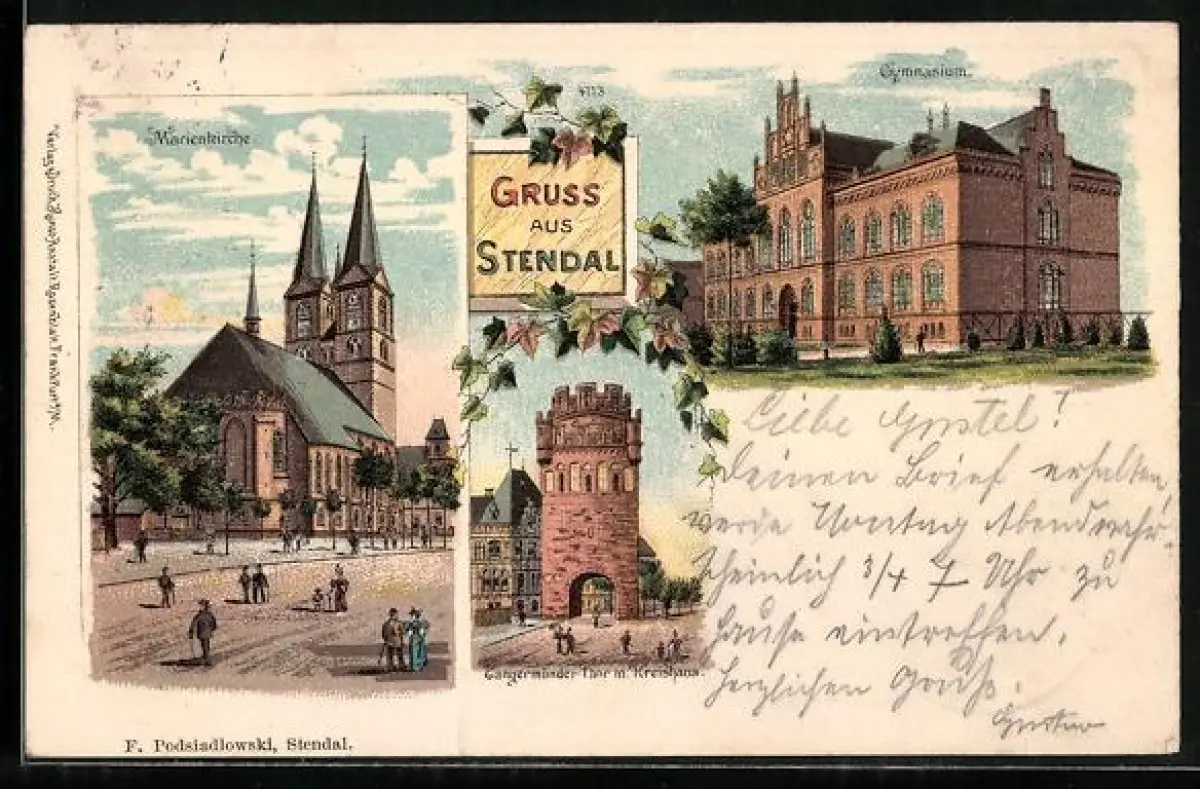 Marienkirche
4113
GRUSS
AUS
STENDAL
Gymnasium.
Tangermünder Thor m. Kreishaus.
Liebe Gustel!
Deinen Brief erhalten,
werde Montag Abend wahr-
scheinlich 3/4 7 Uhr zu
Hause eintreffen.
Herzlichen Gruß.
Gustav
F. Podsiadlowski, Stendal.
Frankfurt a/M.